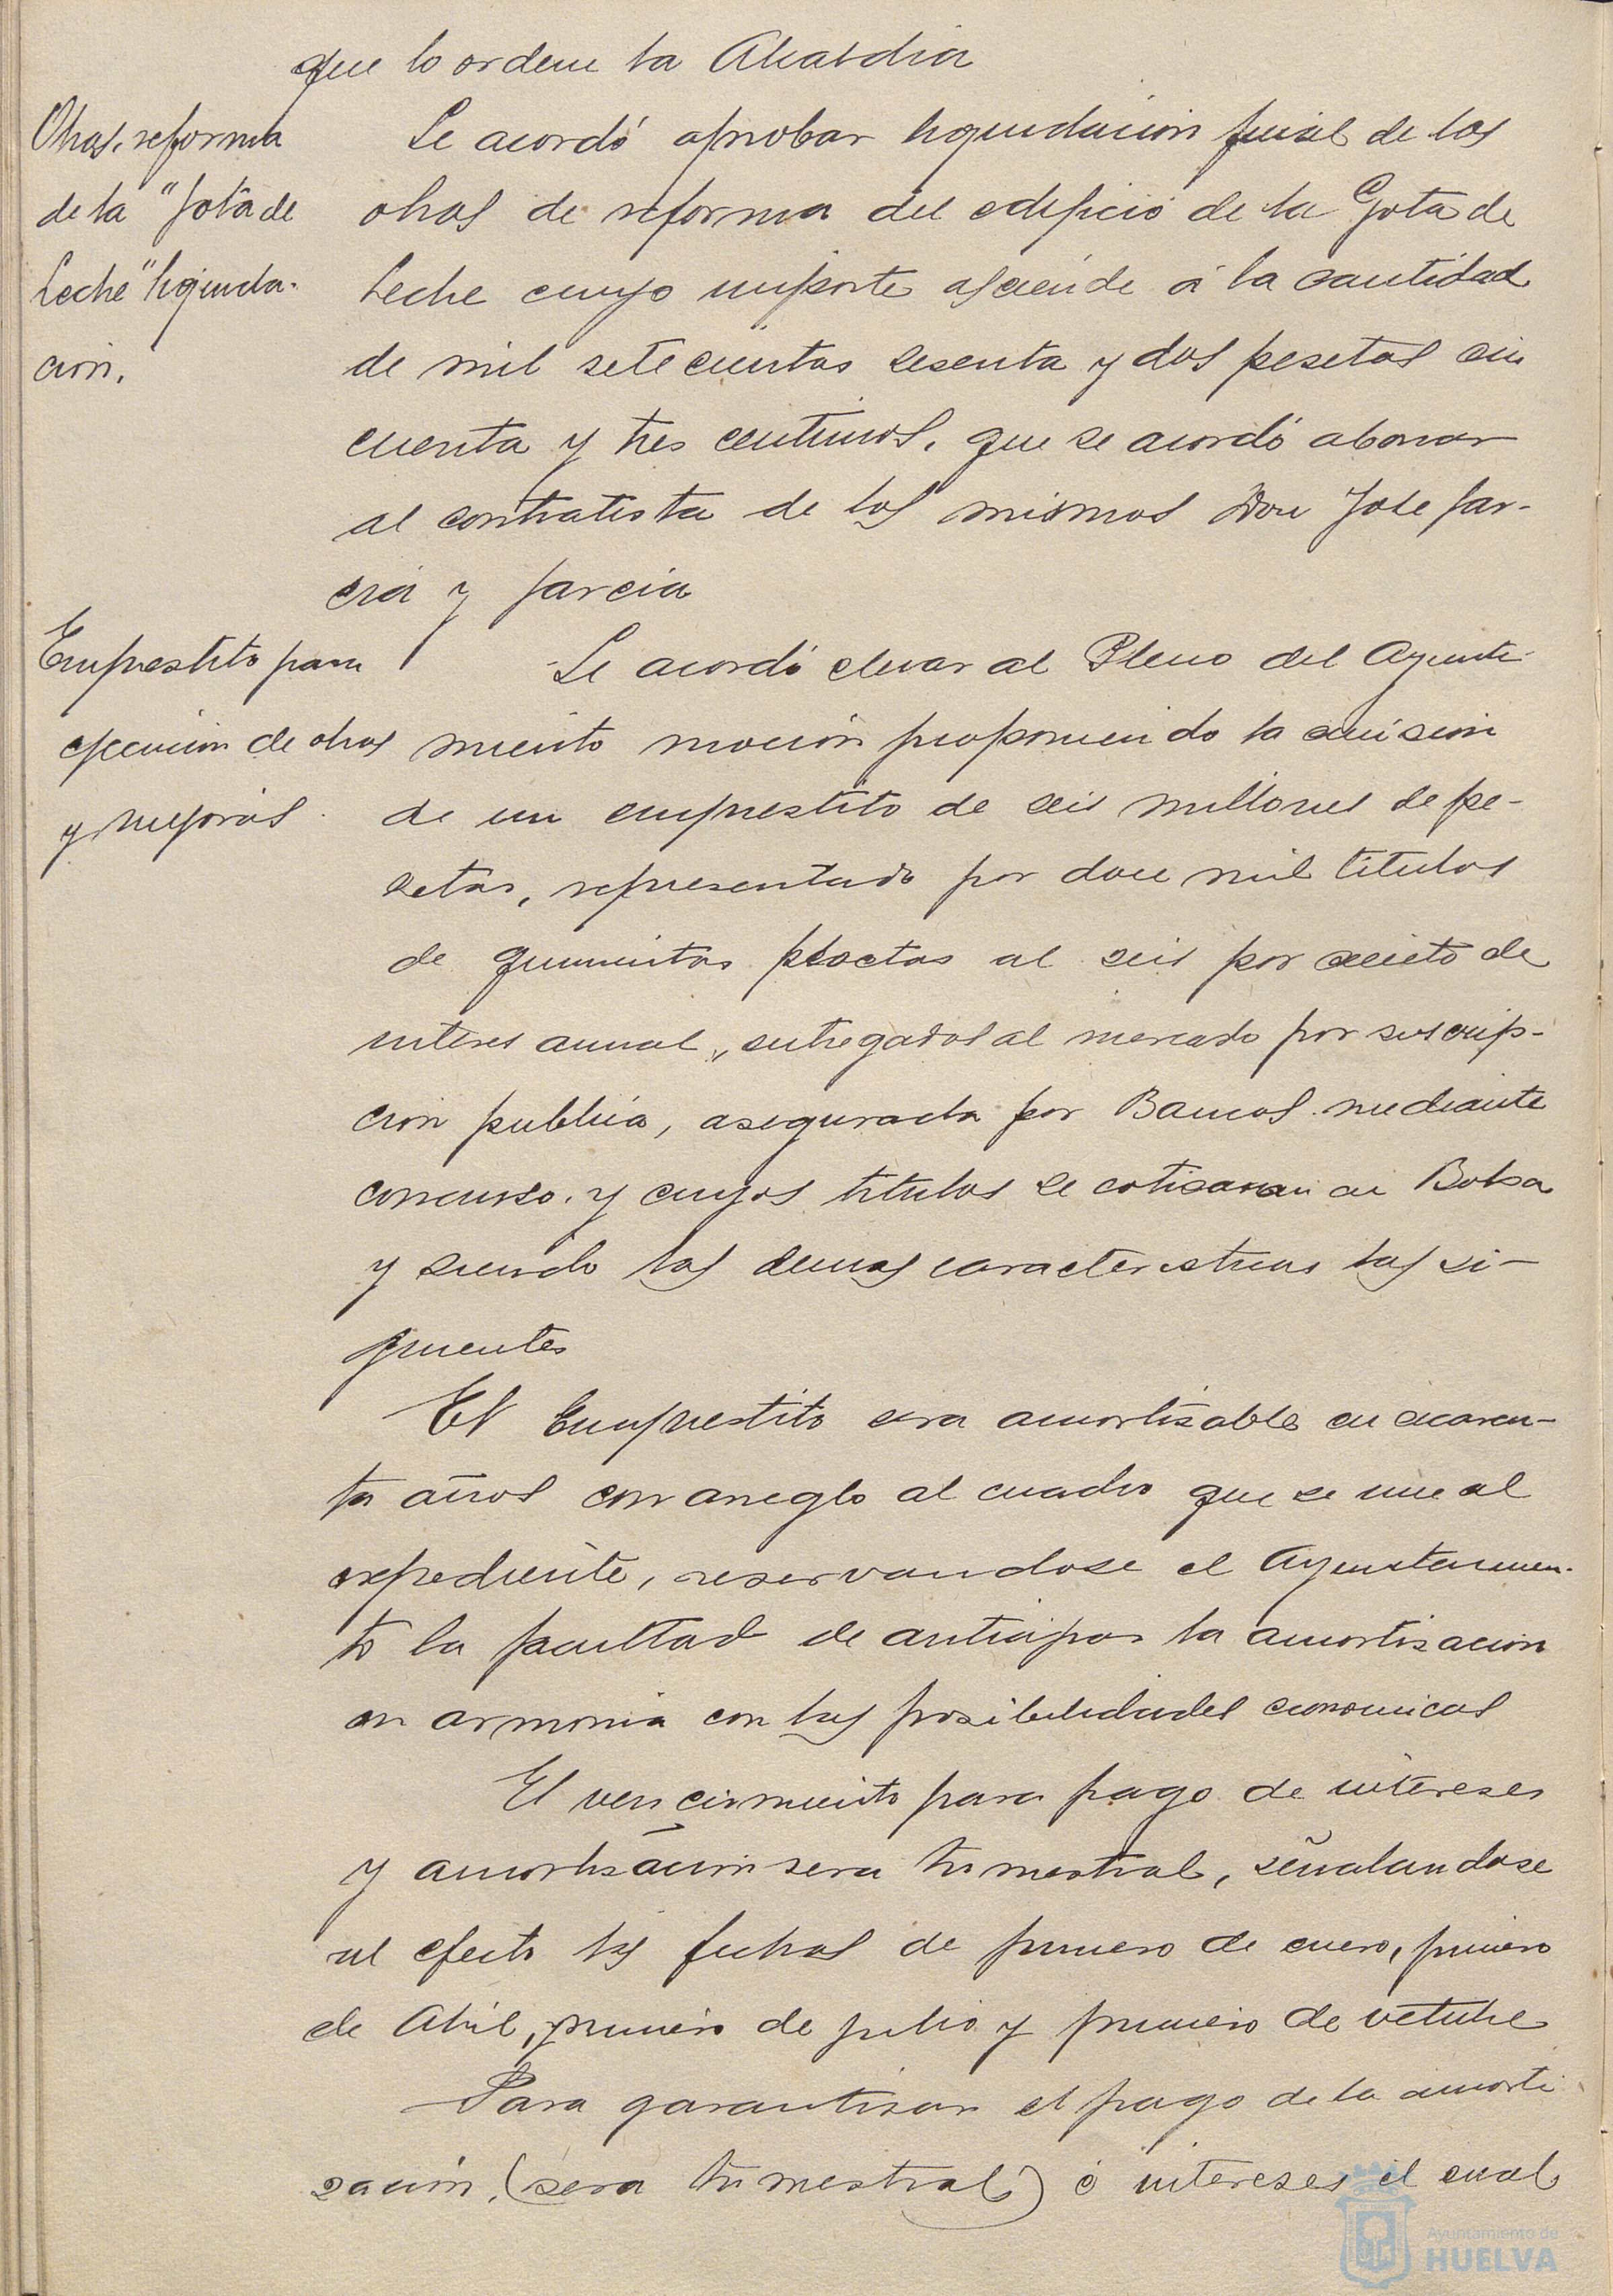 que lo ordene la Alcaldia
Obras. reforma
de la "Gota de
Leche" liquida-
ción.
Se acordó aprobar liquidacion final de las
obras de reforma del edificio de la Gota de
Leche cuyo importe asciende á la cantidad
de mil setecientas sesenta y dos pesetas cin
cuenta y tres centimos, que se acordó abonar
al contratista de las mismas Don Jose Gar-
cia y Garcia
Emprestito para
ejecucion de obras
y mejoras.
Se acordó elevar al Pleno del Ayunta
miento mocion proponiendo la emision
de un emprestito de seis millones de pe-
setas, representado por doce mil titulos
de quinientas pesetas al seis por ciento de
interes anual, entregados al mercado por suscrip-
cion publica, asegurada por Bancos mediante
concurso. y cuyos titulos se cotizaran en Bolsa
y siendo las demas caracteristicas las si-
guientes
El Emprestito sera amortizable en cuaren-
ta años con arreglo al cuadro que se une al
expediente, reservandose el Ayuntamien-
to la facultad de anticipar la amortizacion
en armonia con las posibilidades economicas
El vencimiento para pago de intereses
y amortizacion sera trimestral, señalandose
al efecto las fechas de primero de enero, primero
de Abril, primero de julio y primero de octubre
Para garantizar el pago de la amorti
zacion, (sera trimestral) é intereses el cual
Ayuntamiento de
HUELVA